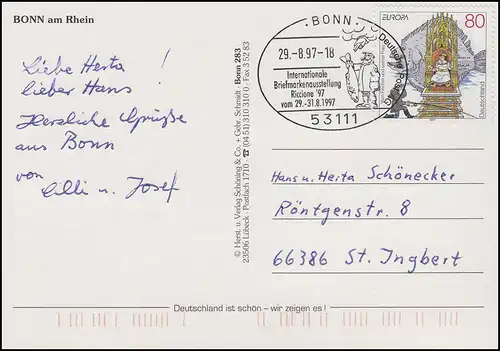 BONN am Rhein
Liebe Herta !
lieber Hans !
Herzliche Grüße
aus Bonn
von
Cilli u. Josef
© Herst. u. Verlag Schöning & Co. + Gebr. Schmidt · Bonn 283
23506 Lübeck · Postfach 1710 · ☎ (04 51) 310 310 0 · Fax 3 52 83
· BONN ·
29.-8.97-18
Internationale
Briefmarkenausstellung
Riccione '97
vom 29.-31.8.1997
53111
Deutsche Post AG
EUROPA
80
Deutschland
Hans u. Herta Schönecker
Röntgenstr. 8
66386 St. Ingbert
Deutschland ist schön – wir zeigen es !